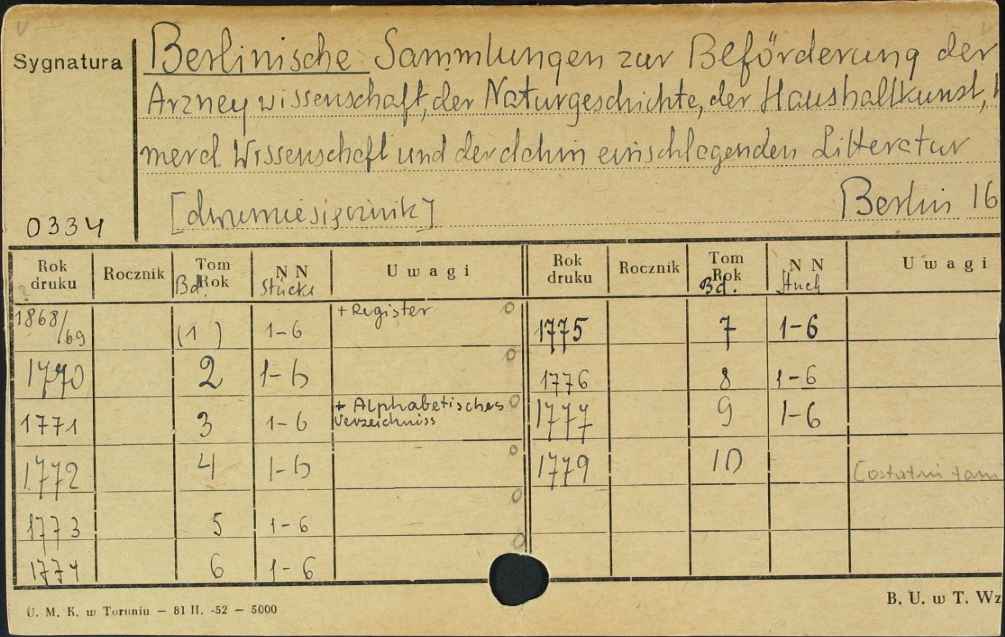 Sygnatura
Berlinische Sammlungen zur Beförderung der
Arzneywissenschaft, der Naturgeschichte, der Haushaltkunst,
meral Wissenschaft und der dahin einschlagenden Litteratur
0334 [dwumiesięcznik] Berlin 16
Rok druku Rocznik Tom Rok Bd. NN Stücke Uwagi Rok druku Rocznik Tom Rok Bd. NN Stuck Uwagi
1868/69 (1) 1-6 + Register 1775 7 1-6
1770 2 1-6 1776 8 1-6
1771 3 1-6 + Alphabetisches Verzeichniss 1777 9 1-6
1772 4 1-6 1779 10 [ostatni tom
1773 5 1-6
1774 6 1-6
U. M. K. w Toruniu — 81 II. -52 — 5000
B. U. w T. Wz